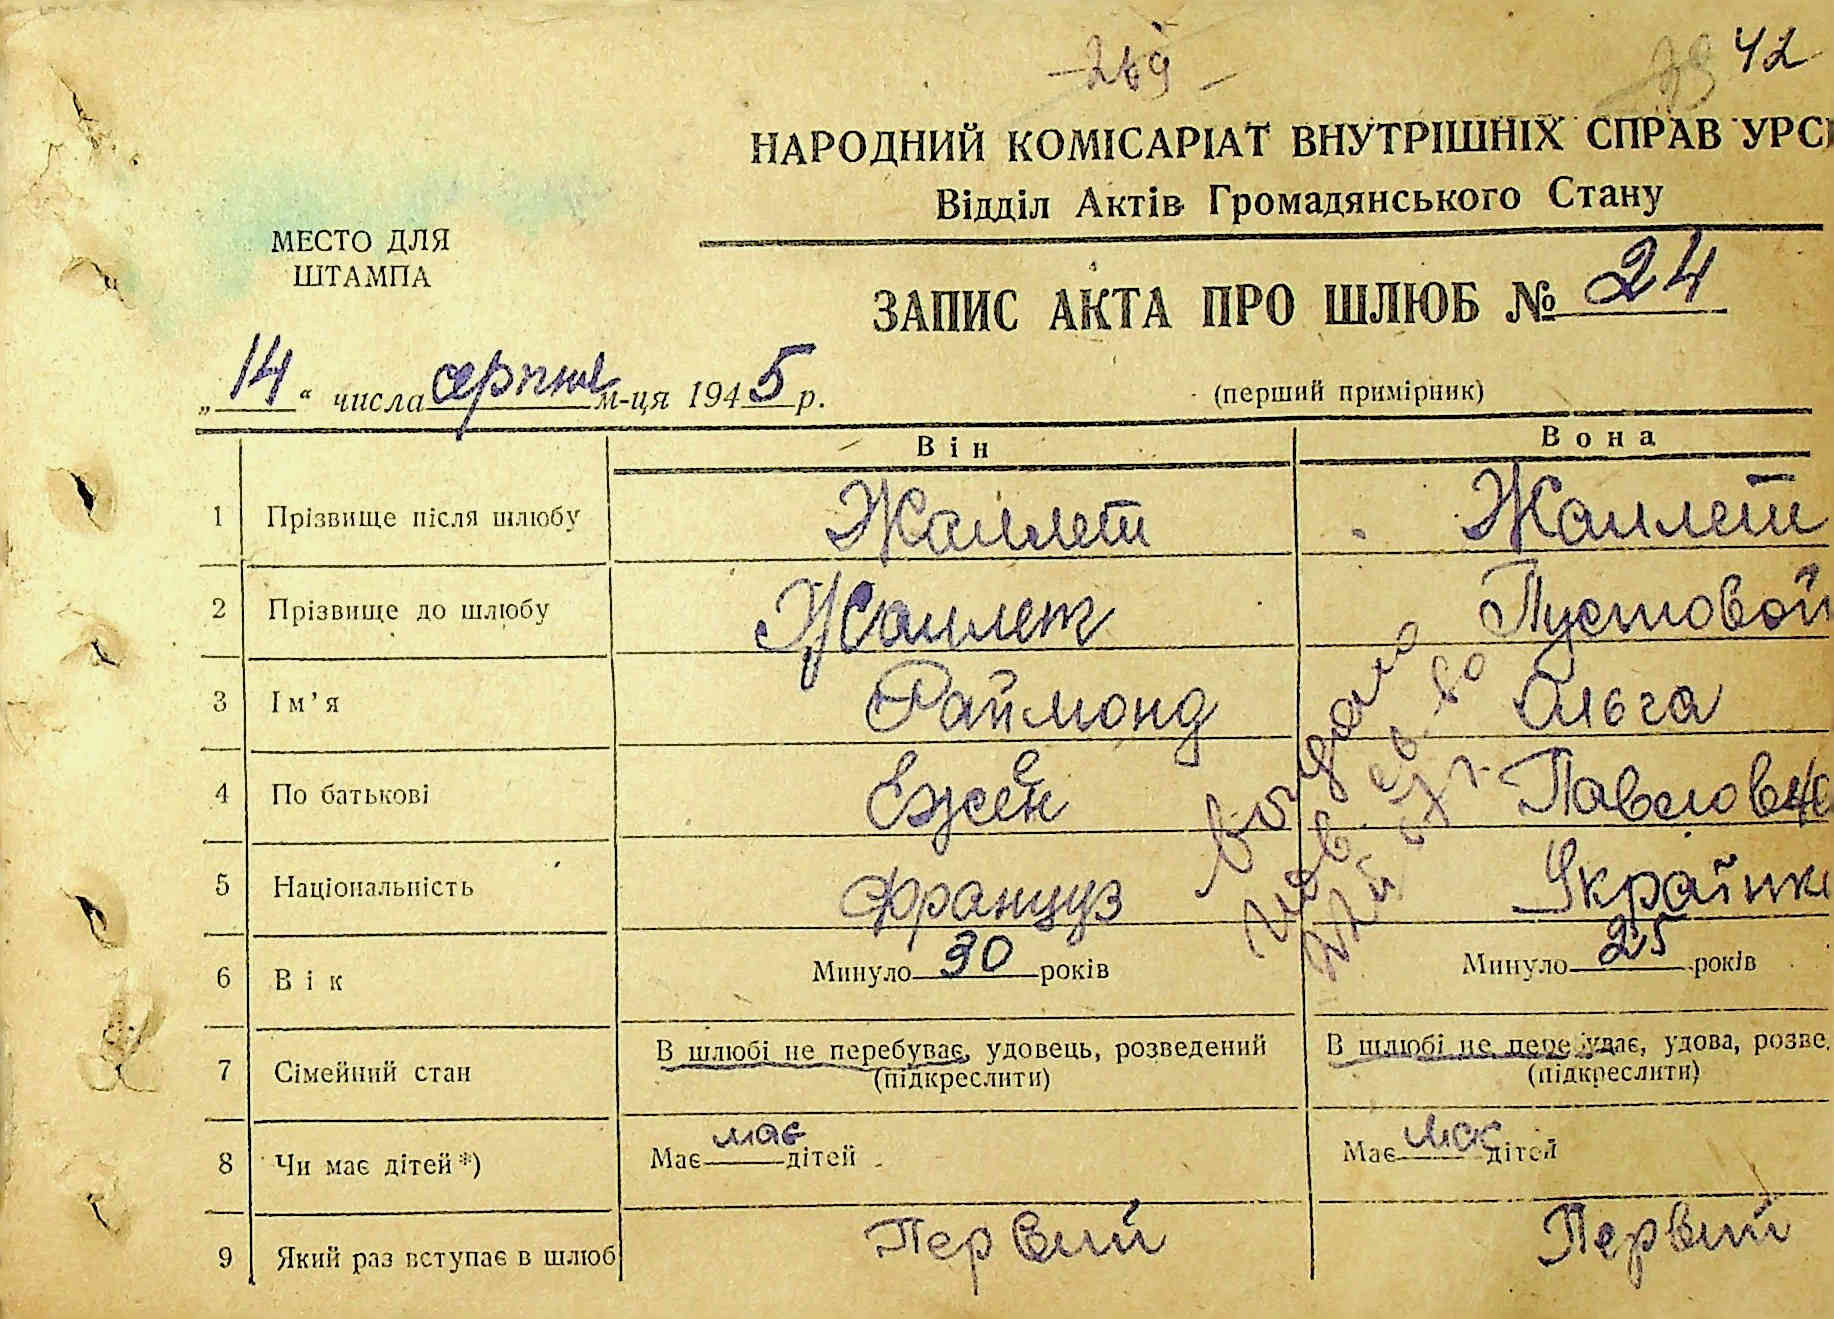 269
42
НАРОДНИЙ КОМІСАРІАТ ВНУТРІШНІХ СПРАВ УРС
Відділ Актів Громадянського Стану
МЕСТО ДЛЯ
ШТАМПА
ЗАПИС АКТА ПРО ШЛЮБ № 24
„14“ числа серпня м-ця 1945 р.
(перший примірник)
Він Вона
1 Прізвище після шлюбу Жаллет Жаллет
2 Прізвище до шлюбу Жаллет Пустовой
3 Ім'я Раймонд Ольга
4 По батькові Ежен Павловна
5 Національність Француз Українк
6 Вік Минуло 30 років Минуло 25 років
7 Сімейний стан В шлюбі не перебуває, удовець, розведений В шлюбі не перебуває, удова, розве
(підкреслити) (підкреслити)
8 Чи має дітей*) Має має дітей Має дітей
9 Який раз вступає в шлюб Первий Первий